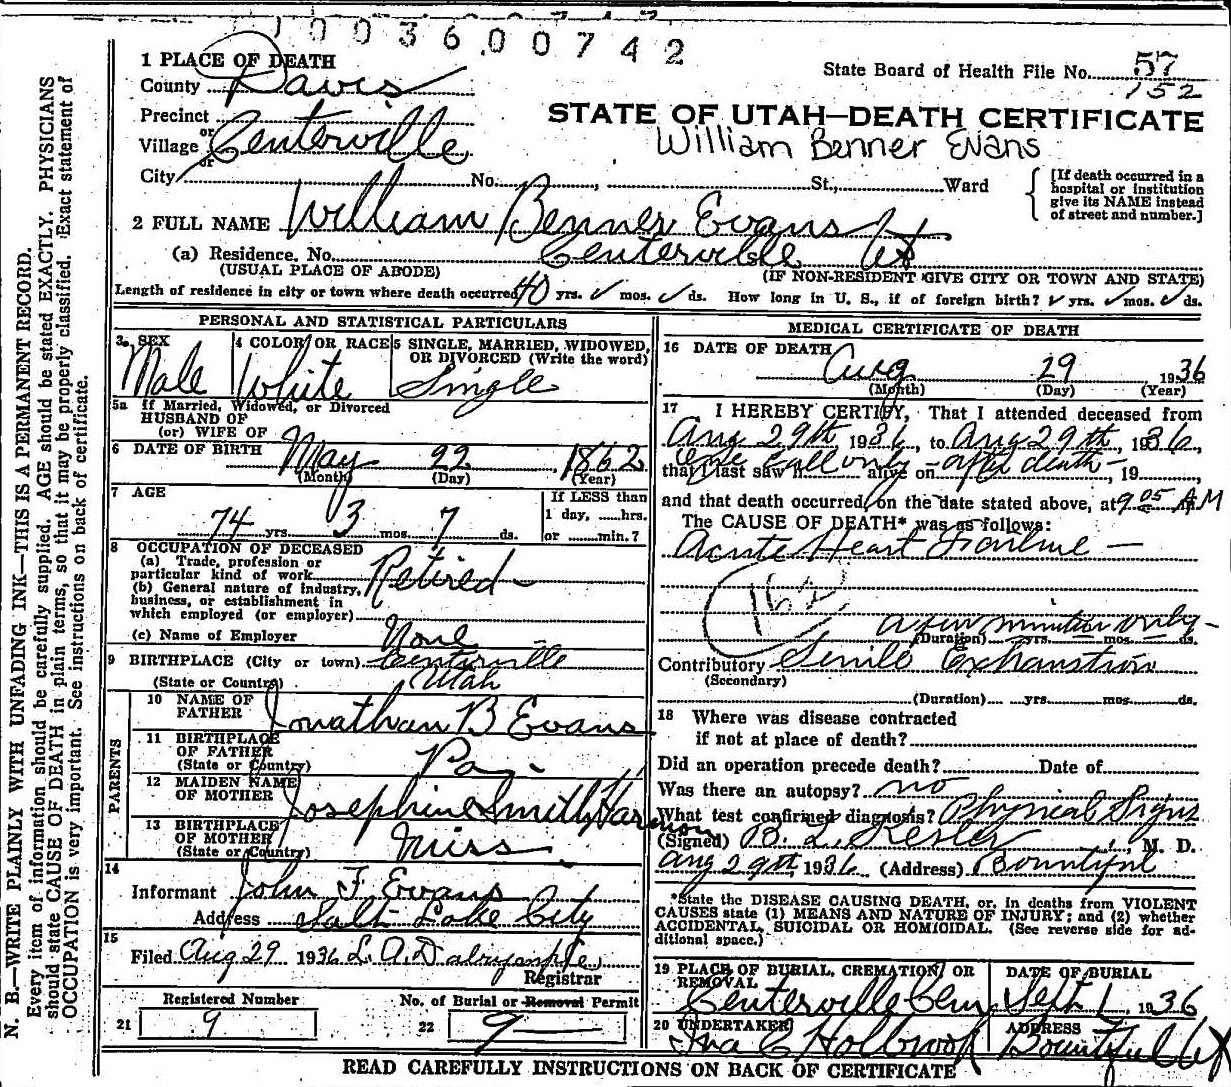 1003600742
1 PLACE OF DEATH
State Board of Health File No. 57
152
County Davis
STATE OF UTAH—DEATH CERTIFICATE
Precinct
or
William Benner Evans
Village Centerville
or
City No. , St., Ward
[If death occurred in a
hospital or institution
give its NAME instead
of street and number.]
2 FULL NAME William Benner Evans
(a) Residence. No. Centerville Ut
(USUAL PLACE OF ABODE) (IF NON-RESIDENT GIVE CITY OR TOWN AND STATE)
Length of residence in city or town where death occurred 40 yrs. ✓ mos. ✓ ds. How long in U. S., if of foreign birth? ✓ yrs. ✓ mos. ✓ ds.
PERSONAL AND STATISTICAL PARTICULARS
3 SEX
Male
4 COLOR OR RACE
White
5 SINGLE, MARRIED, WIDOWED,
OR DIVORCED (Write the word)
Single
5a If Married, Widowed, or Divorced
HUSBAND OF
(or) WIFE OF
6 DATE OF BIRTH May 22, 1862
(Month) (Day) (Year)
7 AGE
74 yrs. 3 mos. 7 ds.
If LESS than
1 day, ......hrs.
or ......min.?
8 OCCUPATION OF DECEASED
(a) Trade, profession or
particular kind of work Retired
(b) General nature of industry,
business, or establishment in
which employed (or employer)
(c) Name of Employer None
9 BIRTHPLACE (City or town) Centerville
(State or Country) Utah
PARENTS
10 NAME OF
FATHER Jonathan B Evans
11 BIRTHPLACE
OF FATHER
(State or Country) Pa.
12 MAIDEN NAME
OF MOTHER Josephine Smith Harmon
13 BIRTHPLACE
OF MOTHER
(State or Country) Miss
14
Informant John F Evans
Address Salt Lake City
15
Filed Aug 29 1936 L. A. Dalrymple
Registrar
Registered Number
21 9
No. of Burial or Removal Permit
22 9
MEDICAL CERTIFICATE OF DEATH
16 DATE OF DEATH
Aug 29 1936
(Month) (Day) (Year)
17 I HEREBY CERTIFY, That I attended deceased from
Aug 29th 1936, to Aug 29th, 1936,
One call only
that I last saw h alive on after death, 19 ,
and that death occurred, on the date stated above, at 9 05 AM
The CAUSE OF DEATH* was as follows:
Acute Heart Failure
162
a few minutes only
(Duration) yrs. mos. ds.
Contributory Senile Exhaustion
(Secondary)
(Duration) yrs. mos. ds.
18 Where was disease contracted
if not at place of death?
Did an operation precede death? Date of
Was there an autopsy? no
What test confirmed diagnosis? Physical Signs
(Signed) B. L. Kesler, M. D.
Aug 29th, 1936 (Address) Bountiful
*State the DISEASE CAUSING DEATH, or, in deaths from VIOLENT
CAUSES state (1) MEANS AND NATURE OF INJURY; and (2) whether
ACCIDENTAL, SUICIDAL OR HOMICIDAL. (See reverse side for ad-
ditional space.)
19 PLACE OF BURIAL, CREMATION, OR
REMOVAL
Centerville Cem
DATE OF BURIAL
Sept 1, 1936
20 UNDERTAKER
Ina C Holbrook
ADDRESS
Bountiful Ut
READ CAREFULLY INSTRUCTIONS ON BACK OF CERTIFICATE
N. B.—WRITE PLAINLY WITH UNFADING INK—THIS IS A PERMANENT RECORD.
Every item of information should be carefully supplied. AGE should be stated EXACTLY. PHYSICIANS
should state CAUSE OF DEATH in plain terms, so that it may be properly classified. Exact statement of
OCCUPATION is very important. See instructions on back of certificate.